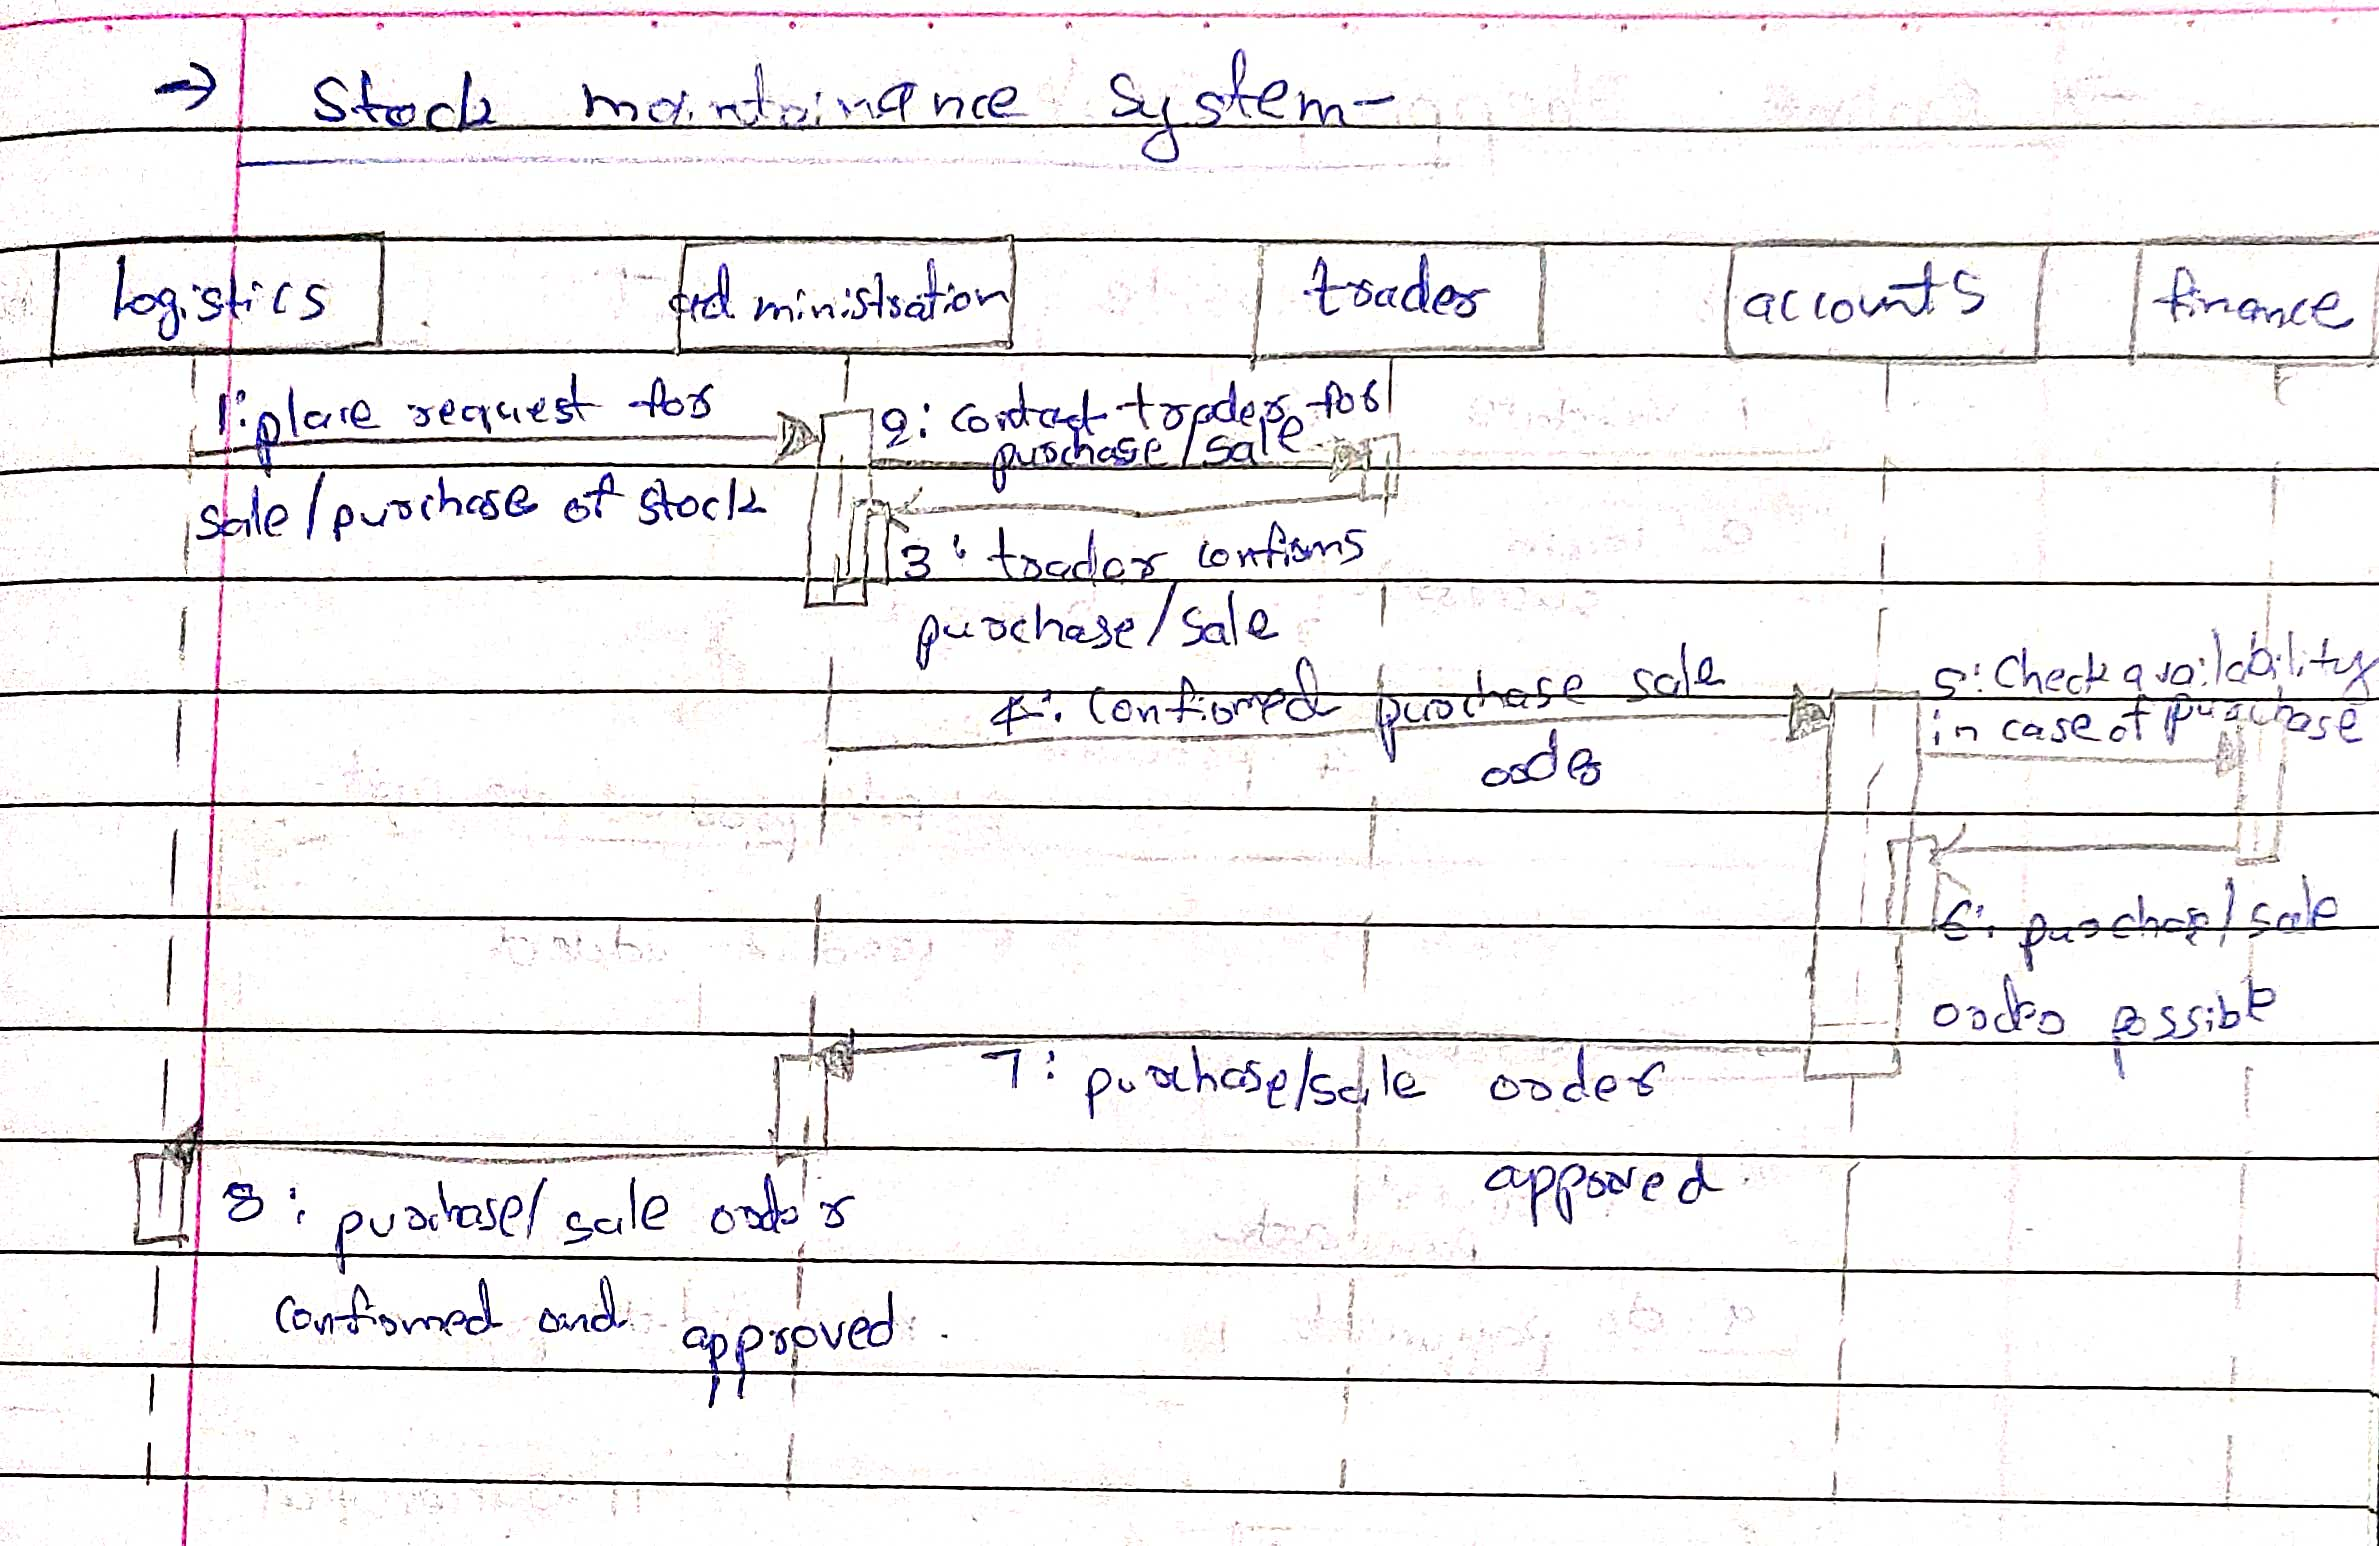 → Stock maintainance System-
Logistics administration trader accounts finance
1: place request for
sale/purchase of stock
2: contact trader for
purchase/sale
3: trader confirms
purchase/sale
4: confirmed purchase sale
order
5: Check availability
in case of purchase
6: purchase/sale
order possible
7: purchase/sale order
approved.
8: purchase/sale order
confirmed and approved.